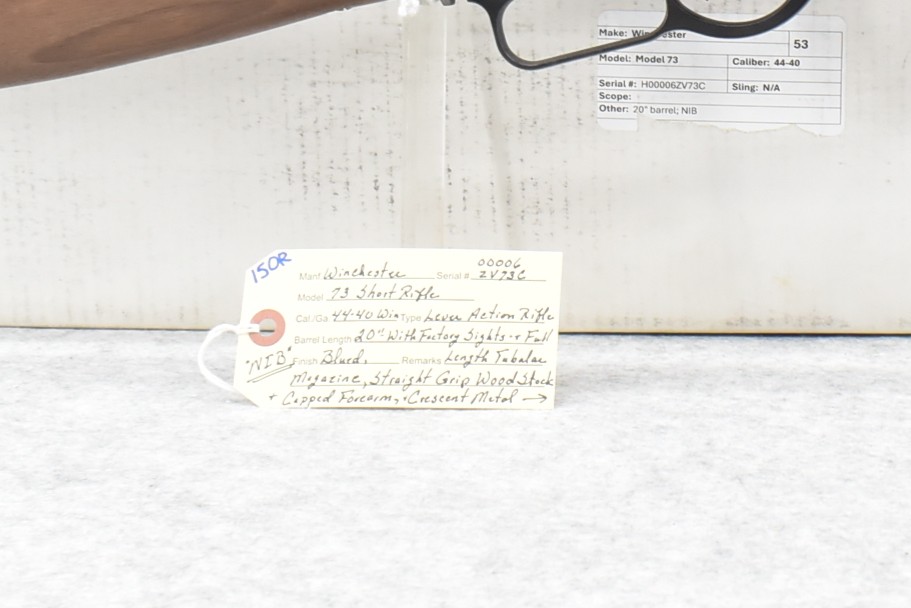 Make: Winchester
53
Model: Model 73 Caliber: 44-40
Serial #: H00006ZV73C Sling: N/A
Scope:
Other: 20" barrel; NIB
150R
00006
Manf Winchester Serial # ZV73C
Model 73 Short Rifle
Cal./Ga. 44-40 Win Type Lever Action Rifle
Barrel Length 20" With Factory Sights + Full
"NIB" Finish Blued. Remarks Length Tubular
Magazine, Straight Grip Wood Stock
+ Capped Forearm, + Crescent Metal →